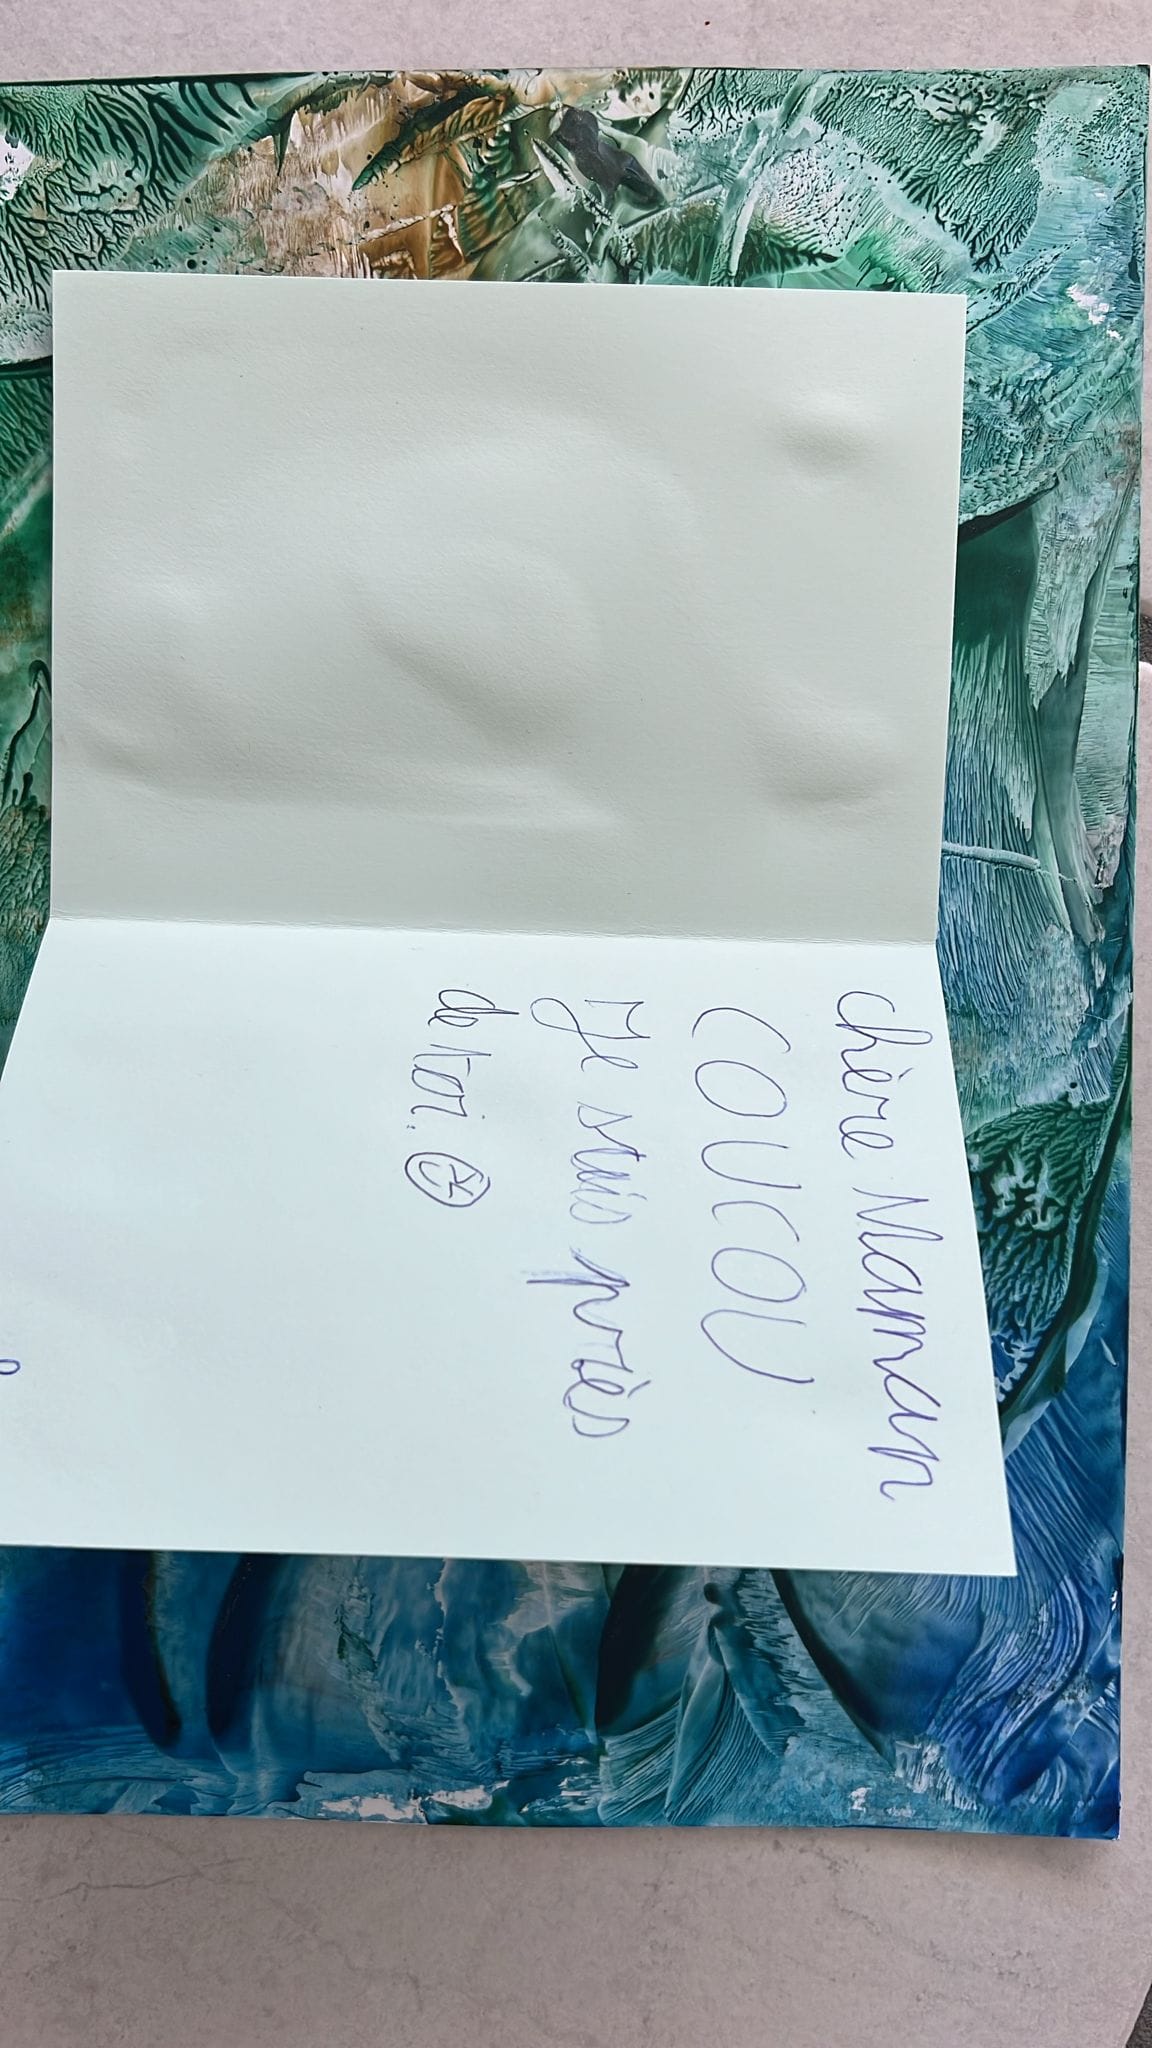 chère Maman
COUCOU
Je suis près
de toi.